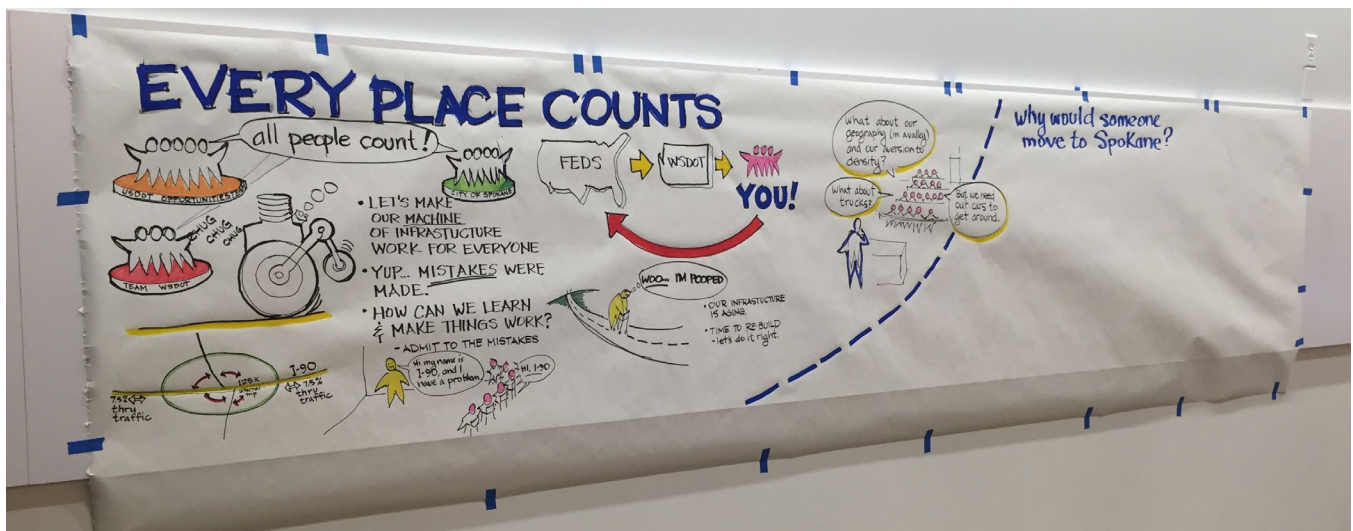 EVERY PLACE COUNTS
all people count!
USDOT OPPORTUNITIES
CITY OF SPOKANE
CHUG
CHUG
CHUG
TEAM WSDOT
• LET'S MAKE
OUR MACHINE
OF INFRASTUCTURE
WORK FOR EVERYONE
• YUP... MISTAKES WERE
MADE.
• HOW CAN WE LEARN
& MAKE THINGS WORK?
- ADMIT TO THE MISTAKES
I-90
125K
7.5%
thru
traffic
7.5%
thru
traffic
Hi my name is
I-90, and I
have a problem.
Hi, I-90
FEDS
WSDOT
YOU!
WOO... I'M POOPED
• OUR INFRASTUCTURE
IS AGING.
• TIME TO RE-BUILD
- let's do it right.
What about our
geography (in a valley)
and our aversion to
density?
What about
trucks?
But we need
our cars to
get around.
Why would someone
move to Spokane?